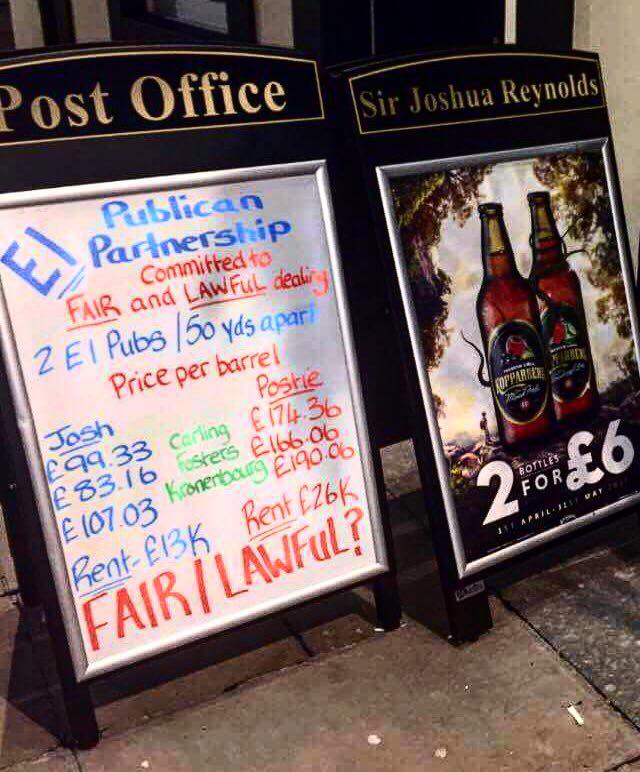 Post Office
EI
Publican
Partnership
Committed to
FAIR and LAWFUL dealing
2 EI Pubs / 50 yds apart
Price per barrel
Josh Postie
£99.33 Carling £174.36
£83.16 Fosters £166.06
£107.03 Kronenbourg £190.06
Rent-£13K Rent £26K
FAIR / LAWFUL?
Sir Joshua Reynolds
KOPPARBERG
Mixed Fruit
2 BOTTLES FOR £6
1ST APRIL - 31ST MAY